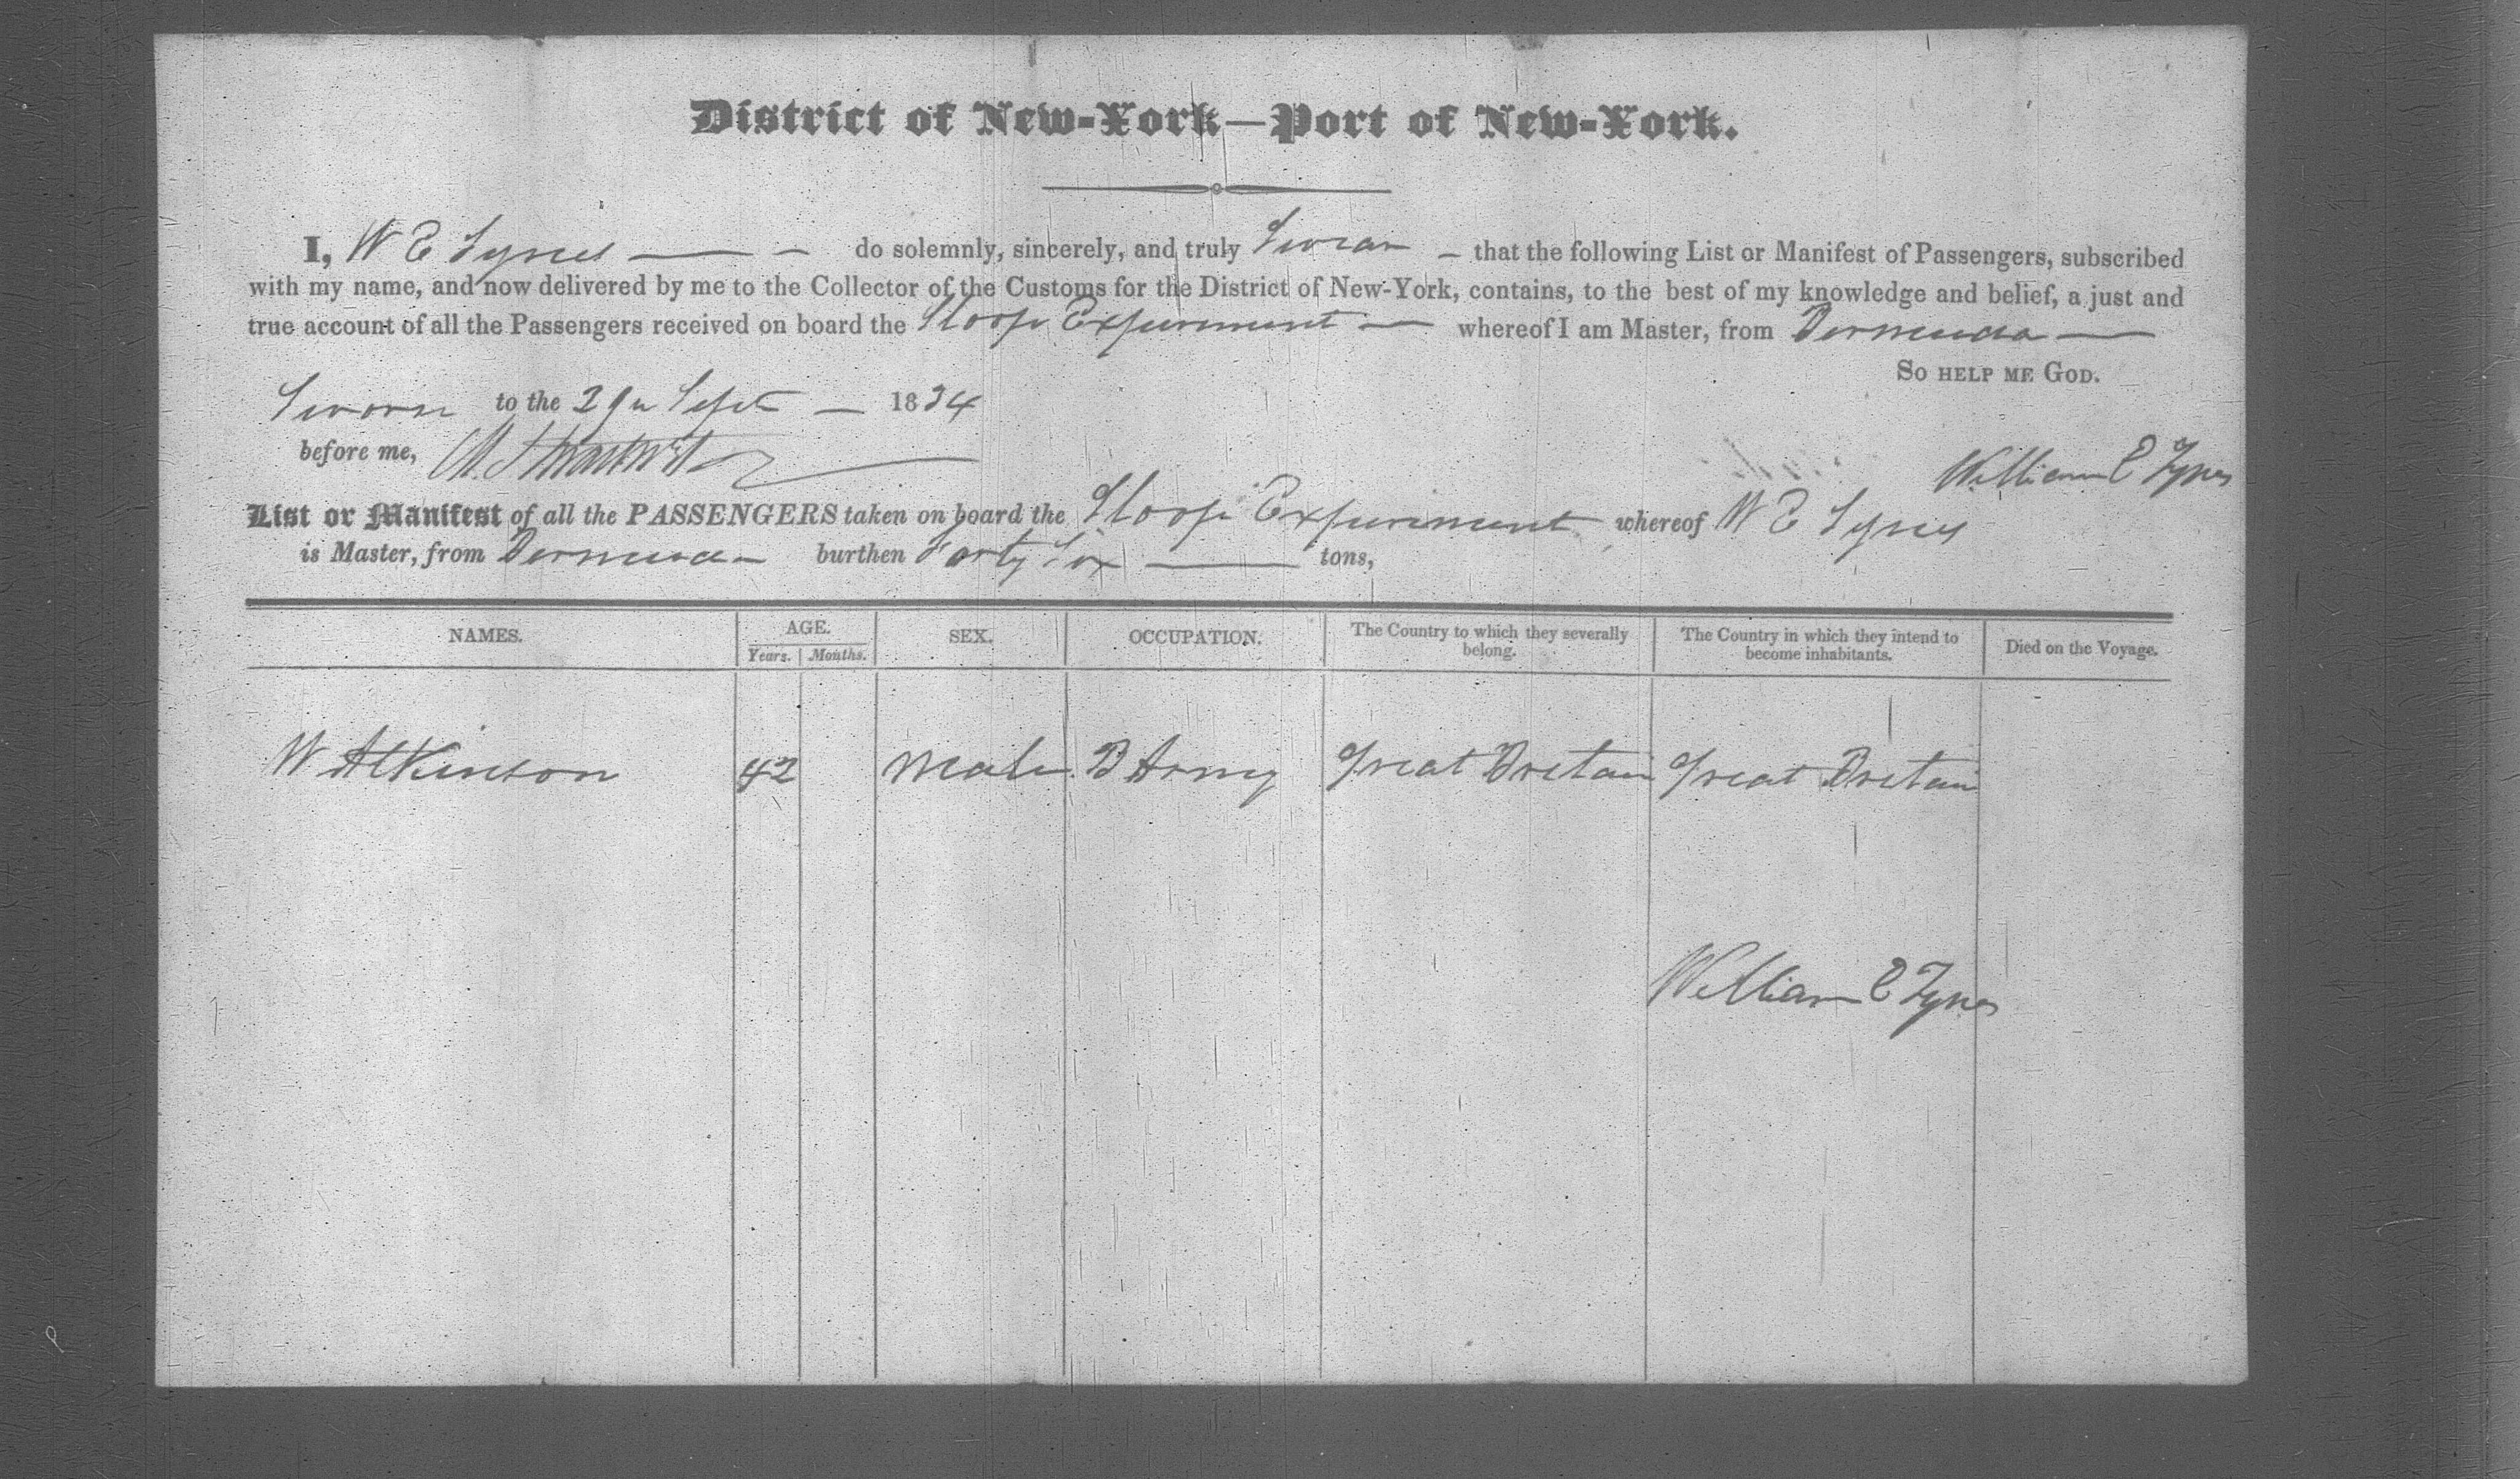 District of New-York—Port of New-York.
I, W E Tynes — – do solemnly, sincerely, and truly Swear – that the following List or Manifest of Passengers, subscribed
with my name, and now delivered by me to the Collector of the Customs for the District of New-York, contains, to the best of my knowledge and belief, a just and
true account of all the Passengers received on board the Sloop Experiment — whereof I am Master, from Bermuda —
So help me God.
Sworn to the 29th Sept — 1834
before me,
William E Tynes
List or Manifest of all the PASSENGERS taken on board the Sloop Experiment whereof W E Tynes
is Master, from Bermuda – burthen Forty Six — tons,
NAMES. AGE. SEX. OCCUPATION. The Country to which they severally belong. The Country in which they intend to become inhabitants. Died on the Voyage.
Years. Months.
W Atkinson 42 Male B Army Great Britain Great Britain
William E Tynes